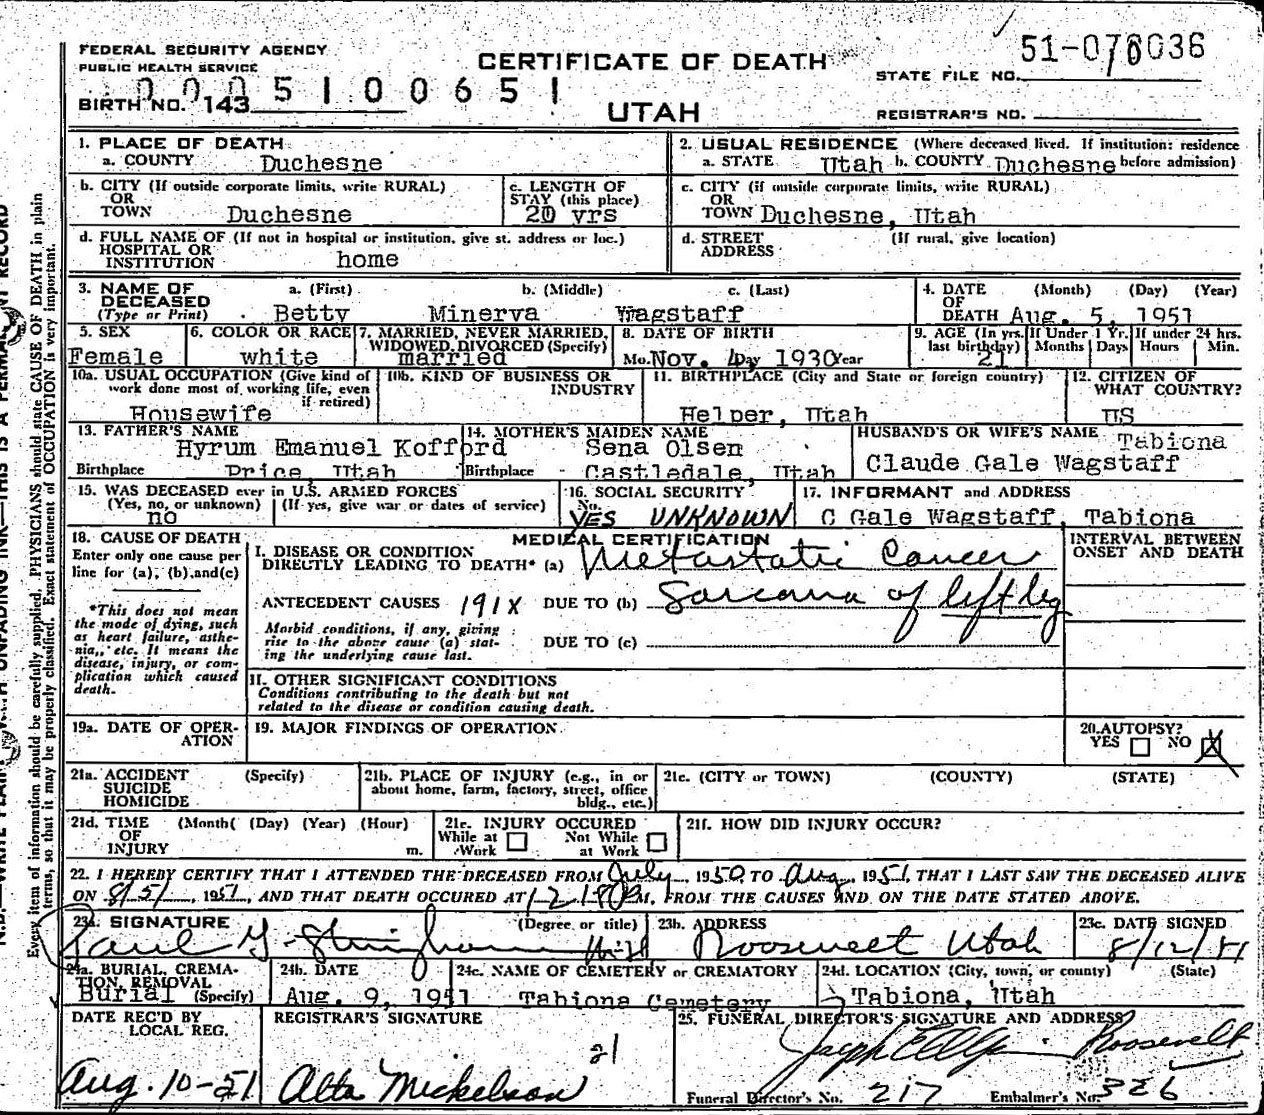 FEDERAL SECURITY AGENCY
PUBLIC HEALTH SERVICE
CERTIFICATE OF DEATH
51-076036
STATE FILE NO.
0005100651
BIRTH NO. 143
UTAH
REGISTRAR'S NO.
1. PLACE OF DEATH
a. COUNTY Duchesne
2. USUAL RESIDENCE (Where deceased lived. If institution: residence
a. STATE Utah b. COUNTY Duchesne before admission)
b. CITY (If outside corporate limits, write RURAL)
OR
TOWN Duchesne
c. LENGTH OF
STAY (this place)
20 yrs
c. CITY (if outside corporate limits, write RURAL)
OR
TOWN Duchesne, Utah
d. FULL NAME OF (If not in hospital or institution, give st. address or loc.)
HOSPITAL OR
INSTITUTION home
d. STREET (If rural, give location)
ADDRESS
3. NAME OF DECEASED
(Type or Print)
a. (First) b. (Middle) c. (Last)
Betty Minerva Wagstaff
4. DATE (Month) (Day) (Year)
OF
DEATH Aug. 5, 1951
5. SEX
Female
6. COLOR OR RACE
white
7. MARRIED, NEVER MARRIED,
WIDOWED, DIVORCED (Specify)
married
8. DATE OF BIRTH
Mo. Nov. 4 Day 1930 Year
9. AGE (In yrs. last birthday)
21
If Under 1 Yr.
Months Days
If under 24 hrs.
Hours Min.
10a. USUAL OCCUPATION (Give kind of
work done most of working life, even
if retired)
Housewife
10b. KIND OF BUSINESS OR
INDUSTRY
11. BIRTHPLACE (City and State or foreign country)
Helper, Utah
12. CITIZEN OF
WHAT COUNTRY?
US
13. FATHER'S NAME
Hyrum Emanuel Kofford
Birthplace Price, Utah
14. MOTHER'S MAIDEN NAME
Sena Olsen
Birthplace - Castledale, Utah
HUSBAND'S OR WIFE'S NAME Tabiona
Claude Gale Wagstaff
15. WAS DECEASED ever in U.S. ARMED FORCES
(Yes, no, or unknown) (If yes, give war or dates of service)
no
16. SOCIAL SECURITY
No.
YES UNKNOWN
17. INFORMANT and ADDRESS
C Gale Wagstaff, Tabiona
18. CAUSE OF DEATH
Enter only one cause per
line for (a), (b), and (c)
*This does not mean
the mode of dying, such
as heart failure, asthe-
nia, etc. It means the
disease, injury, or com-
plication which caused
death.
MEDICAL CERTIFICATION
I. DISEASE OR CONDITION
DIRECTLY LEADING TO DEATH* (a) Metastatic Cancer
ANTECEDENT CAUSES 191X DUE TO (b) Sarcoma of left leg
Morbid conditions, if any, giving
rise to the above cause (a) stat-
ing the underlying cause last.
DUE TO (c)
II. OTHER SIGNIFICANT CONDITIONS
Conditions contributing to the death but not
related to the disease or condition causing death.
INTERVAL BETWEEN
ONSET AND DEATH
19a. DATE OF OPER-
ATION
19. MAJOR FINDINGS OF OPERATION
20. AUTOPSY?
YES NO X
21a. ACCIDENT (Specify)
SUICIDE
HOMICIDE
21b. PLACE OF INJURY (e.g., in or
about home, farm, factory, street, office
bldg., etc.)
21c. (CITY or TOWN) (COUNTY) (STATE)
21d. TIME (Month( (Day) (Year) (Hour)
OF
INJURY m.
21e. INJURY OCCURED
While at Work Not While at Work
21f. HOW DID INJURY OCCUR?
22. I HEREBY CERTIFY THAT I ATTENDED THE DECEASED FROM July, 1950, TO Aug, 1951, THAT I LAST SAW THE DECEASED ALIVE
ON 8/5/, 1951, AND THAT DEATH OCCURED AT M, FROM THE CAUSES AND ON THE DATE STATED ABOVE.
23a. SIGNATURE (Degree or title)
Paul G. Stringham
23b. ADDRESS
Roosevelt Utah
23c. DATE SIGNED
8/12/51
24a. BURIAL, CREMA-
TION, REMOVAL
Burial (Specify)
24b. DATE
Aug. 9, 1951
24c. NAME OF CEMETERY or CREMATORY
Tabiona Cemetery
24d. LOCATION (City, town, or county) (State)
Tabiona, Utah
DATE REC'D BY
LOCAL REG.
Aug. 10-51
REGISTRAR'S SIGNATURE
21
Alta Mickelson
25. FUNERAL DIRECTOR'S SIGNATURE AND ADDRESS
Joseph Roosevelt
Funeral Director's No. 217 Embalmer's No. 326
Every item of information should be carefully supplied. PHYSICIANS should state CAUSE OF DEATH in plain
terms, so that it may be properly classified. Exact statement of OCCUPATION is very important.
UNFADING INK—THIS IS A PERMANENT RECORD